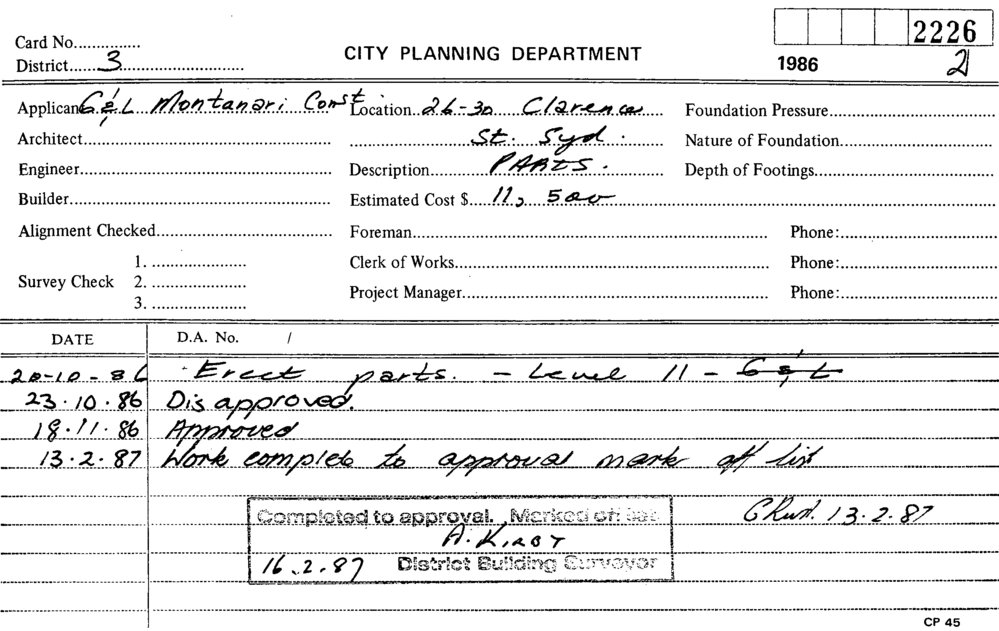 2226
Card No...............
CITY PLANNING DEPARTMENT
1986
2
District......3
Applicant G & L Montanari Const Location..26-30 Clarence Foundation Pressure
Architect St. Syd. Nature of Foundation
Engineer Description PARTS. Depth of Footings
Builder Estimated Cost $ 11,500
Alignment Checked Foreman Phone:
1. Clerk of Works Phone:
Survey Check 2.
Project Manager Phone:
3.
DATE D.A. No. /
20-10-86 Erect parts. - Level 11 - G & L
23.10.86 Disapproved.
18.11.86 Approved
13.2.87 Work complete to approval mark off list
Completed to approval. Marked off list
13.2.87
A. KIRBY
16.2.87 District Building Surveyor
CP 45